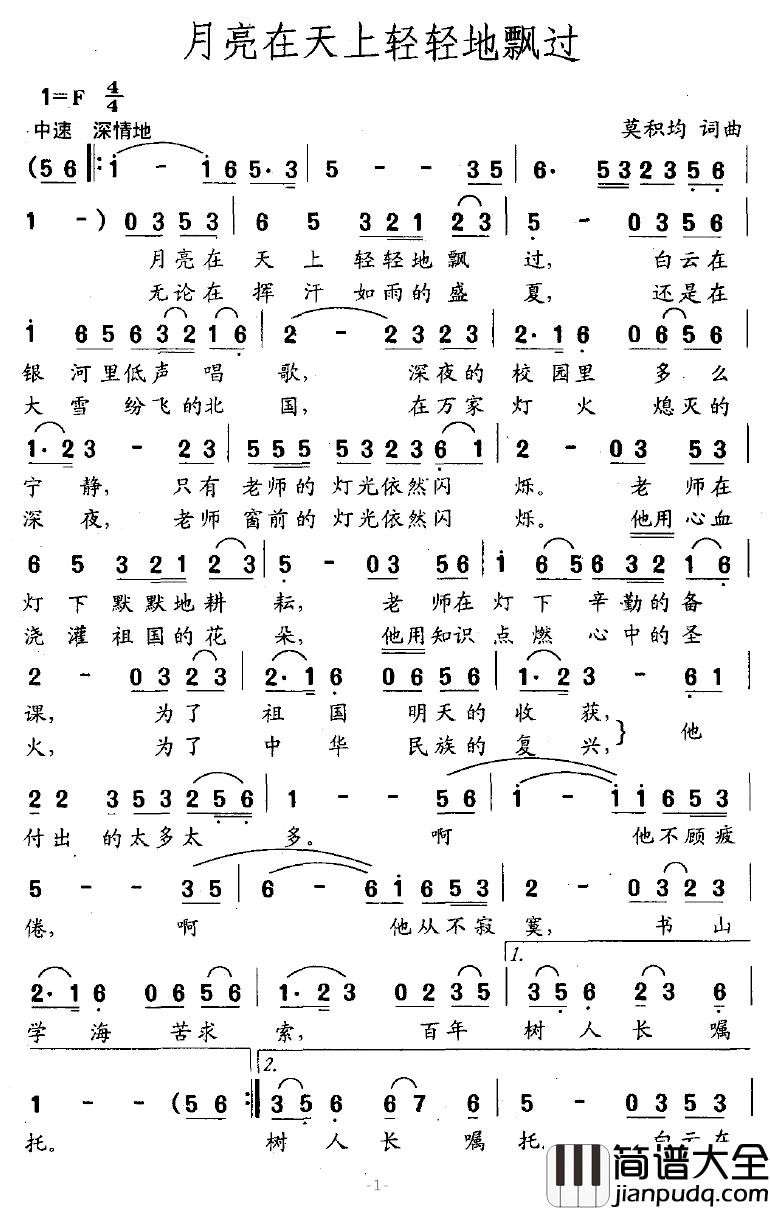 月亮在天上轻轻地飘过
1=F 4/4
中速 深情地
莫积均 词曲
(5 6 ‖: i - i 6 5· 3 | 5 - - 3 5 | 6· 5 3 2 3 5 6 |
1 -) 0 3 5 3 | 6 5 3 2 1 2 3 | 5 - 0 3 5 6 |
月亮在 天 上 轻轻地飘 过, 白云在
无论在 挥 汗 如雨的盛 夏, 还是在
i 6 5 6 3 2 1 6 | 2 - 2 3 2 3 | 2· 1 6 0 6 5 6 |
银 河里低声 唱 歌, 深夜的 校园里 多么
大 雪 纷飞的北 国, 在万家 灯 火 熄灭的
1· 2 3 - 2 3 | 5 5 5 5 3 2 3 6 1 | 2 - 0 3 5 3 |
宁 静, 只有 老师的 灯光依然闪 烁。 老 师在
深 夜, 老师 窗前的 灯光依然闪 烁。 他用心血
6 5 3 2 1 2 3 | 5 - 0 3 5 6 | i 6 5 6 3 2 1 6 |
灯 下 默默地耕 耘, 老 师在灯下 辛勤的备
浇 灌 祖国的花 朵, 他用知识 点燃 心中的圣
2 - 0 3 2 3 | 2· 1 6 0 6 5 6 | 1· 2 3 - 6 1 |
课, 为了 祖 国 明天的 收 获,
火, 为了 中 华 民族的 复 兴,} 他
2 2 3 5 3 2 5 6 | 1 - - 5 6 | i - i i 6 5 3 |
付出 的太多太 多。 啊 他不顾疲
5 - - 3 5 | 6 - 6 i 6 5 3 | 2 - 0 3 2 3 |
倦, 啊 他从不寂 寞, 书山
1.
2· 1 6 0 6 5 6 | 1· 2 3 0 2 3 5 | 3 5 6 2 3 6 |
学 海 苦求 索, 百年 树 人 长 嘱
2.
1 - - (5 6 :‖ 3 5 6 6 7 6 | 5 - 0 3 5 3
托。 树 人 长 嘱 托 白云在
-1-
简谱大全
jianpudq.com